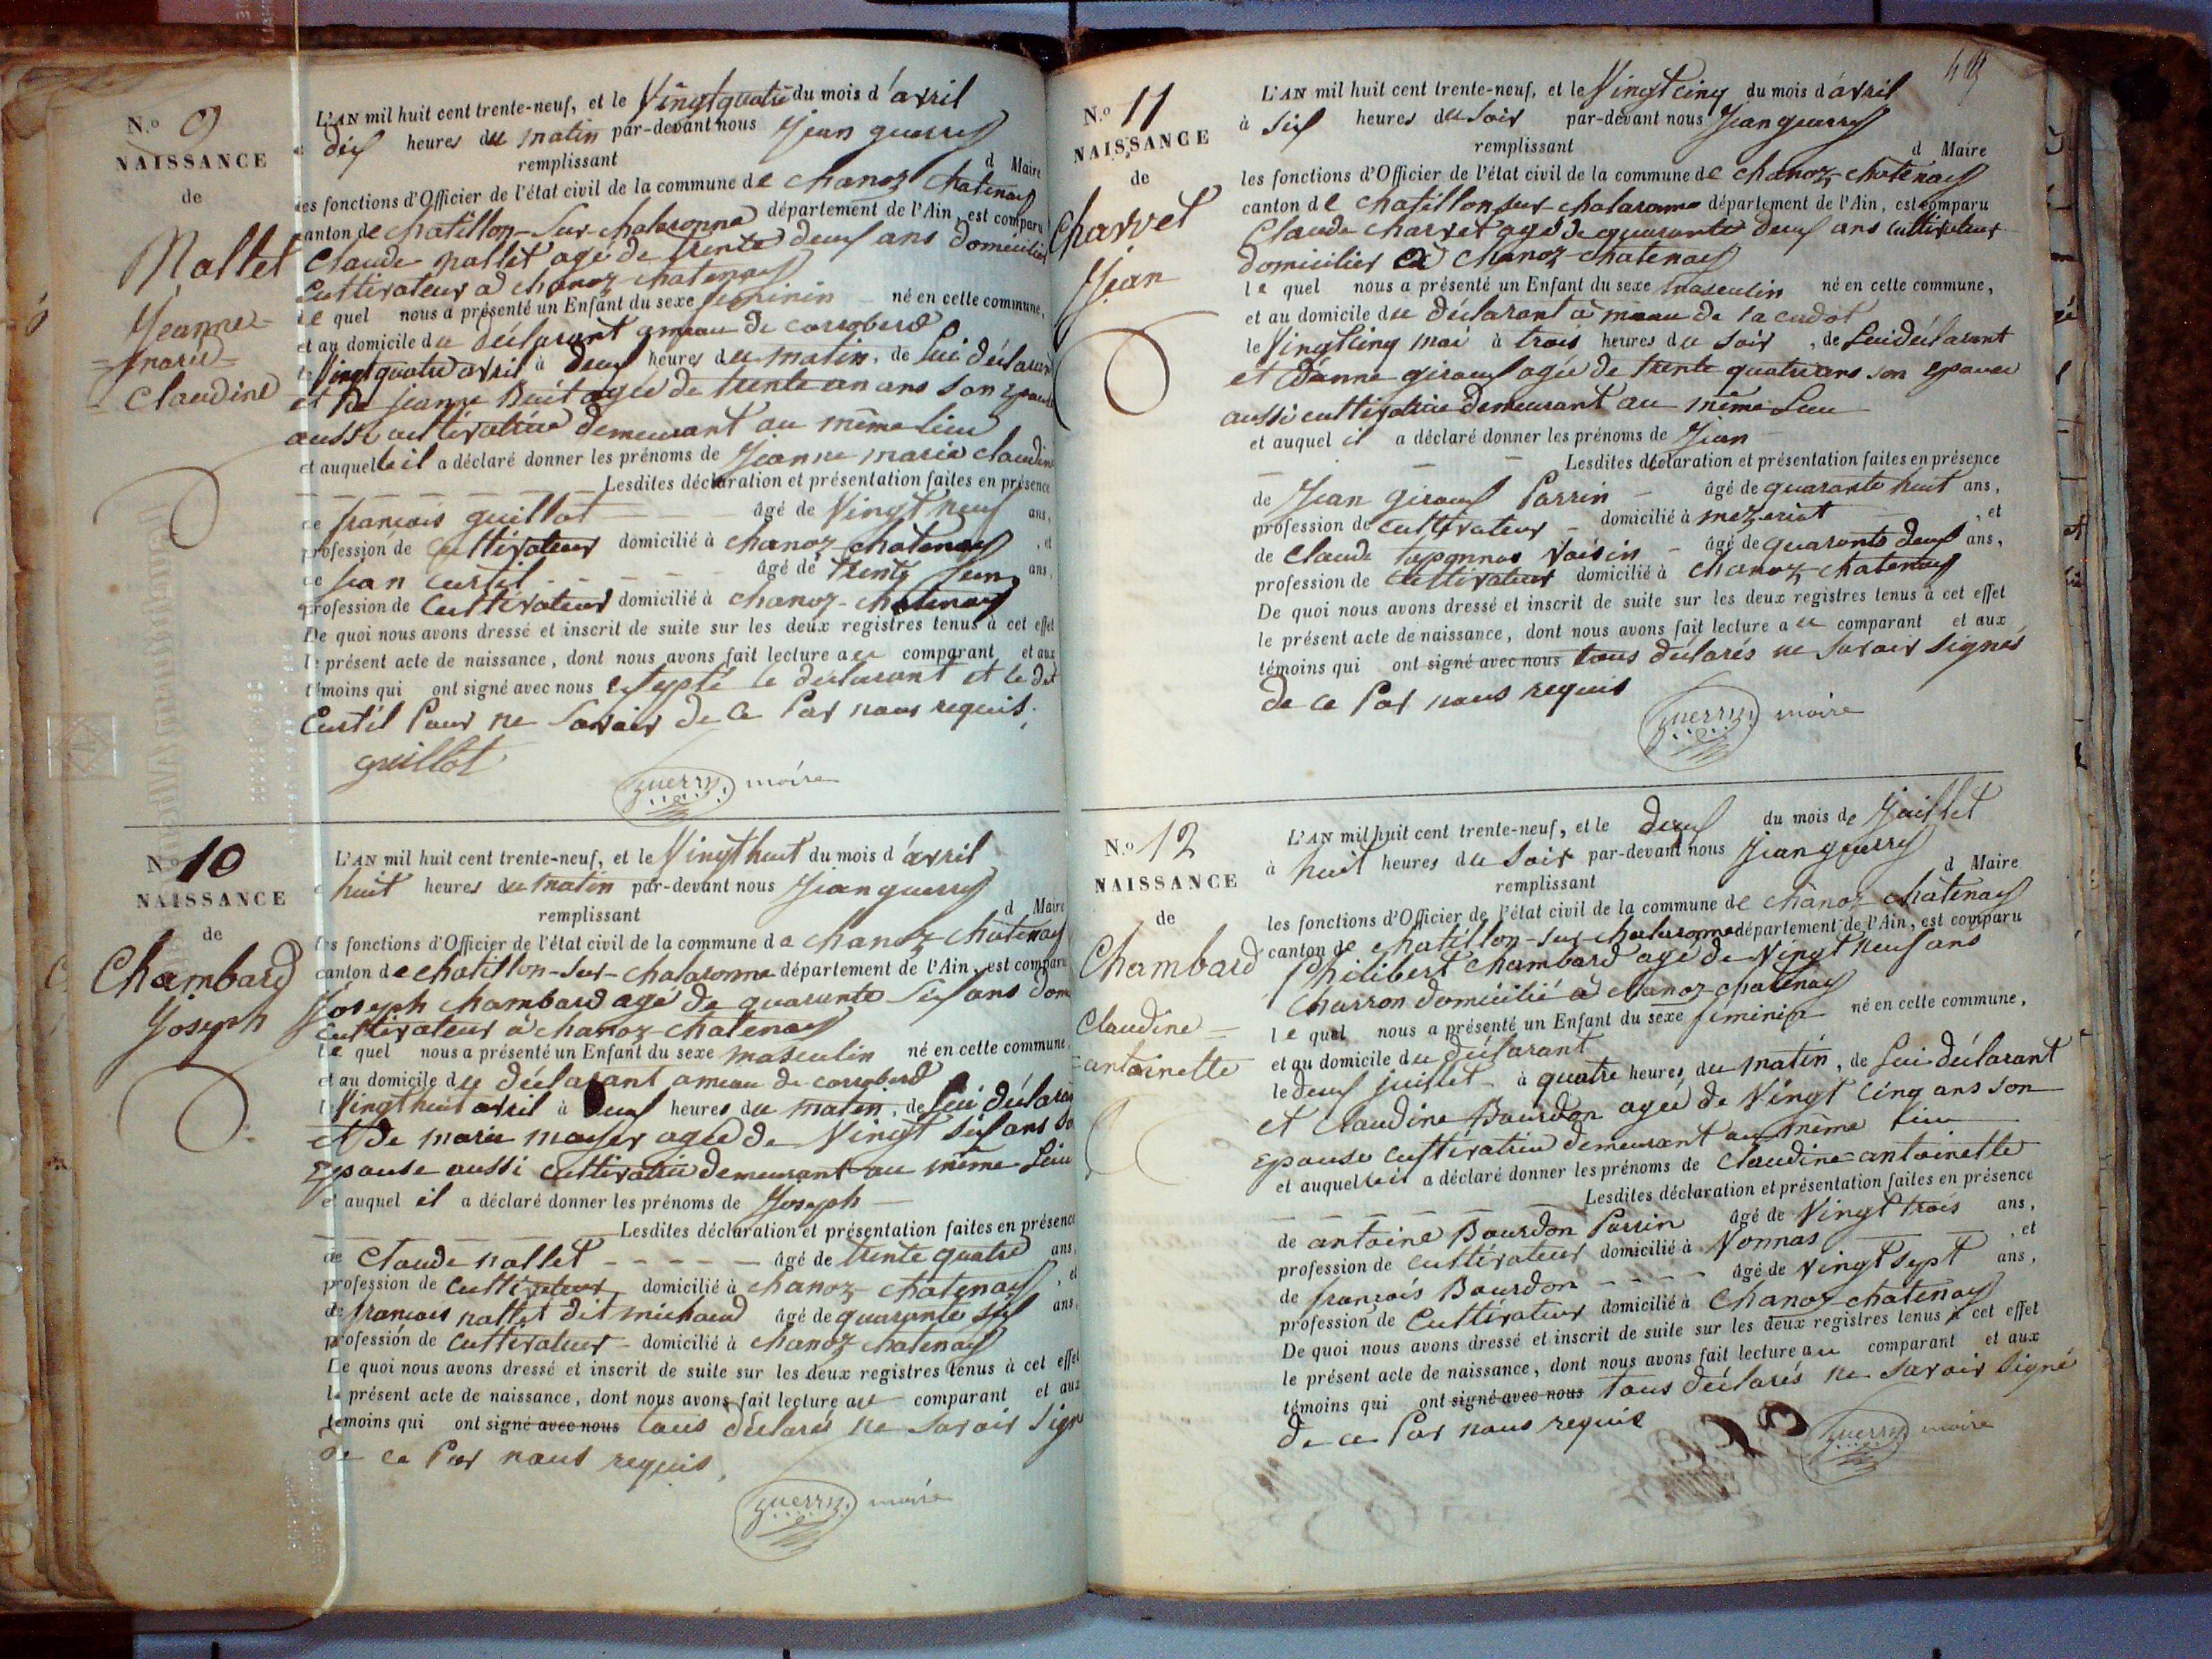 N.o 9
NAISSANCE
de
Nallet
Jeanne
marie
Claudine
L'AN mil huit cent trente-neuf, et le Vingt quatre du mois d'avril
à dix heures du matin par-devant nous Jean guerry
remplissant d Maire
les fonctions d'Officier de l'état civil de la commune de chanoz chatenay
canton de chatillon-sur-chalaronne département de l'Ain, est comparu
Claude nallet agé de trente deux ans domicilié
Cultivateur a chanoz-chatenay
le quel nous a présenté un Enfant du sexe feminin né en cette commune,
et au domicile du déclarant ameau de corroberd
le Vingt quatre avril à deux heures du matin, de Lui déclarant
et De Jeanne Buit agée de trente un ans son Epouse
aussi cultivatrice demeurant au même lieu
et auquelle il a déclaré donner les prénoms de Jeanne marie claudine
Lesdites déclaration et présentation faites en présence
de françois guillot âgé de Vingt neuf ans,
profession de Cultivateur domicilié à chanoz-chatenay, et
de Jean Curtil âgé de trente ans,
profession de Cultivateur domicilié à chanoz-chatenay
De quoi nous avons dressé et inscrit de suite sur les deux registres tenus à cet effet
le présent acte de naissance, dont nous avons fait lecture au comparant et aux
témoins qui ont signé avec nous Exsepté le déclarant et le dit
Curtil Pour ne Savoir de Ce Par nous requis.
guillot
guerry maire
N.o 10
NAISSANCE
de
Chambard
Joseph
L'AN mil huit cent trente-neuf, et le Vingt huit du mois d'avril
à huit heures du matin par-devant nous Jean guerry
remplissant d Maire
les fonctions d'Officier de l'état civil de la commune de chanoz-chatenay
canton de chatillon-sur-chalaronne département de l'Ain, est comparu
Joseph chambard agé de quarante six ans dom
cultivateur à chanoz-chatenay
le quel nous a présenté un Enfant du sexe masculin né en cette commune,
et au domicile du déclarant ameau de corroberd
le Vingt huit avril à Deux heures du maten, de Lui déclarant
et De marie moyer agée de Vingt six ans So
Epouse aussi cultivatrice demeurant au même Lieu
et auquel il a déclaré donner les prénoms de Joseph
Lesdites déclaration et présentation faites en présence
de Claude nallet âgé de trente quatre ans,
profession de Cultivateur domicilié à chanoz-chatenay, et
de francois nallet dit michaud âgé de quarante six ans,
profession de Cultivateur domicilié à chanoz chatenay
De quoi nous avons dressé et inscrit de suite sur les deux registres tenus à cet effet
le présent acte de naissance, dont nous avons fait lecture au comparant et aux
témoins qui ont signé avec nous tous déclarés ne Savoir Signe
de ce Par nous requis,
guerry maire
49
N.o 11
NAISSANCE
de
Charvet
Jean
L'AN mil huit cent trente-neuf, et le Vingt cinq du mois d'avril
à six heures du soir par-devant nous Jean guerry
remplissant d Maire
les fonctions d'Officier de l'état civil de la commune de chanoz-chatenay
canton de chatillon sur-chalaronne département de l'Ain, est comparu
Claude charvet agé de quarante deux ans cultivateur
domicilier a chanoz-chatenay
le quel nous a présenté un Enfant du sexe masculin né en cette commune,
et au domicile du déclarant a maau de la cudot
le Vingt cinq mai à trois heures du soir, de Lui déclarant
et D'anne giroux agée de trente quatre ans son Epouse
aussi cultivatrice demeurant au même Lieu
et auquel il a déclaré donner les prénoms de Jean
Lesdites déclaration et présentation faites en présence
de Jean giroux Parrin âgé de quarante huit ans,
profession de cultivateur domicilié à mezeriat, et
de Claude taponnas Voisin âgé de quarante deux ans,
profession de Cultivateur domicilié à chanoz-chatenay
De quoi nous avons dressé et inscrit de suite sur les deux registres tenus à cet effet
le présent acte de naissance, dont nous avons fait lecture au comparant et aux
témoins qui ont signé avec nous tous déclarés ne Savoir Signés
de ce Par nous requis
guerry maire
N.o 12
NAISSANCE
de
Chambard
Claudine
antoinette
L'AN mil huit cent trente-neuf, et le deux du mois de Juillet
à huit heures du Soir par-devant nous Jean guerry
remplissant d Maire
les fonctions d'Officier de l'état civil de la commune de chanoz chatenay
canton de chatillon-sur-chalaronne département de l'Ain, est comparu
Philibert chambard agé de Vingt neuf ans
Charron domicilié a chanoz-chatenay
le quel nous a présenté un Enfant du sexe féminin né en cette commune,
et au domicile du déclarant
le deux juillet à quatre heures du matin, de Lui déclarant
et Claudine Bourdon agée de Vingt Cinq ans son
Epouse cultivatrice demeurant au même Lieu
et auquelle il a déclaré donner les prénoms de Claudine antoinette
Lesdites déclaration et présentation faites en présence
de antoine Bourdon Parrin âgé de Vingt trois ans,
profession de cultivateur domicilié à Vonnas, et
de françois Bourdon âgé de Vingt Sept ans,
profession de Cultivateur domicilié à Chanoz-chatenay
De quoi nous avons dressé et inscrit de suite sur les deux registres tenus à cet effet
le présent acte de naissance, dont nous avons fait lecture au comparant et aux
témoins qui ont signé avec nous tous déclarés ne Savoir Signé
de ce Par nous requis
guerry maire